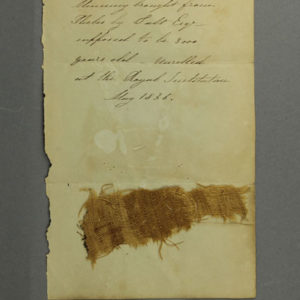 Mummy brought from
Thebes by Salt Esqr
supposed to be
years old - unrolled
at the Royal Institution
May 1836.